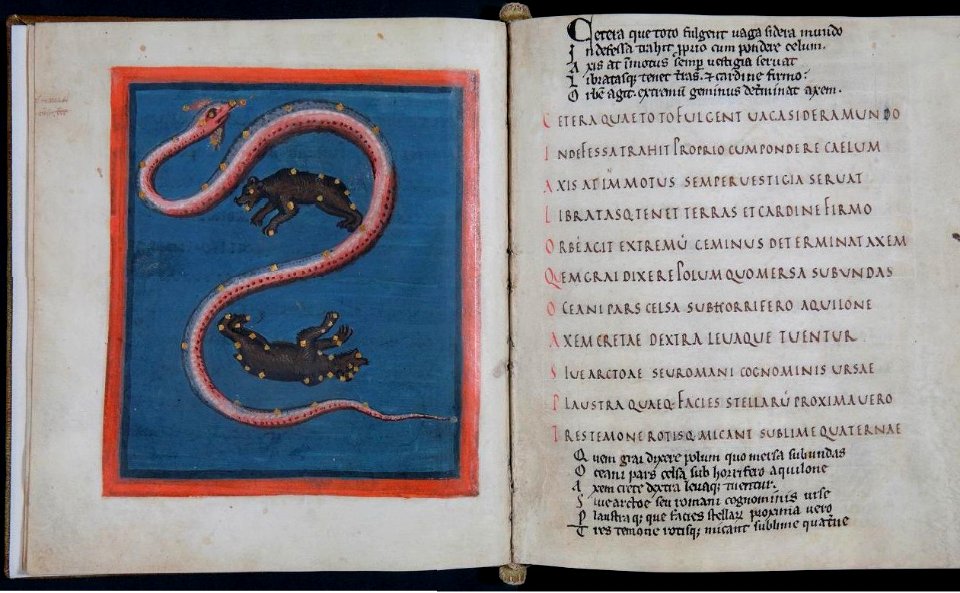 Cetera que toto fulgent uaga sidera mundo
Indefessa trahit ꝓprio cum pondere celum.
Axis at īmotus semꝑ uestigia seruat
Libratasqꝫ tenet t̄ras. ⁊ cardine firmo:
Orbē agit. extremū geminus det̄minat axem.
CETERA QUAE TOTO FULGENT UACA SIDERA MUNDO
INDEFESSA TRAHIT PROPRIO CUM PONDERE CAELUM
AXIS AT IMMOTUS SEMPER UESTIGIA SERUAT
LIBRATASQ. TENET TERRAS ET CARDINE FIRMO
ORBĒ AGIT EXTREMŪ GEMINUS DETERMINAT AXEM
QUEM GRAI DIXERE POLUM QUO MERSA SUB UNDAS
OCEANI PARS CELSA SUB HORRIFERO AQUILONE
AXEM CRETAE DEXTRA LEUAQUE TUENTUR
SIUE ARCTOAE SEU ROMANI COGNOMINIS URSAE
PLAUSTRA QUAEQ. FACIES STELLARŪ PROXIMA UERO
TRES TEMONE ROTISQ. MICANT SUBLIME QUATERNAE
Quem grai dixere polum quo mersa sub undas
Oceani pars celsa sub horrifero aquilone
Axem crete dextra leuaqꝫ tuentur.
Siue arctoe seu romani cognominis urse
Plaustra qꝫ que facies stellarꝝ proxima uero
Tres temone rotisqꝫ micant sublime quat̄ne